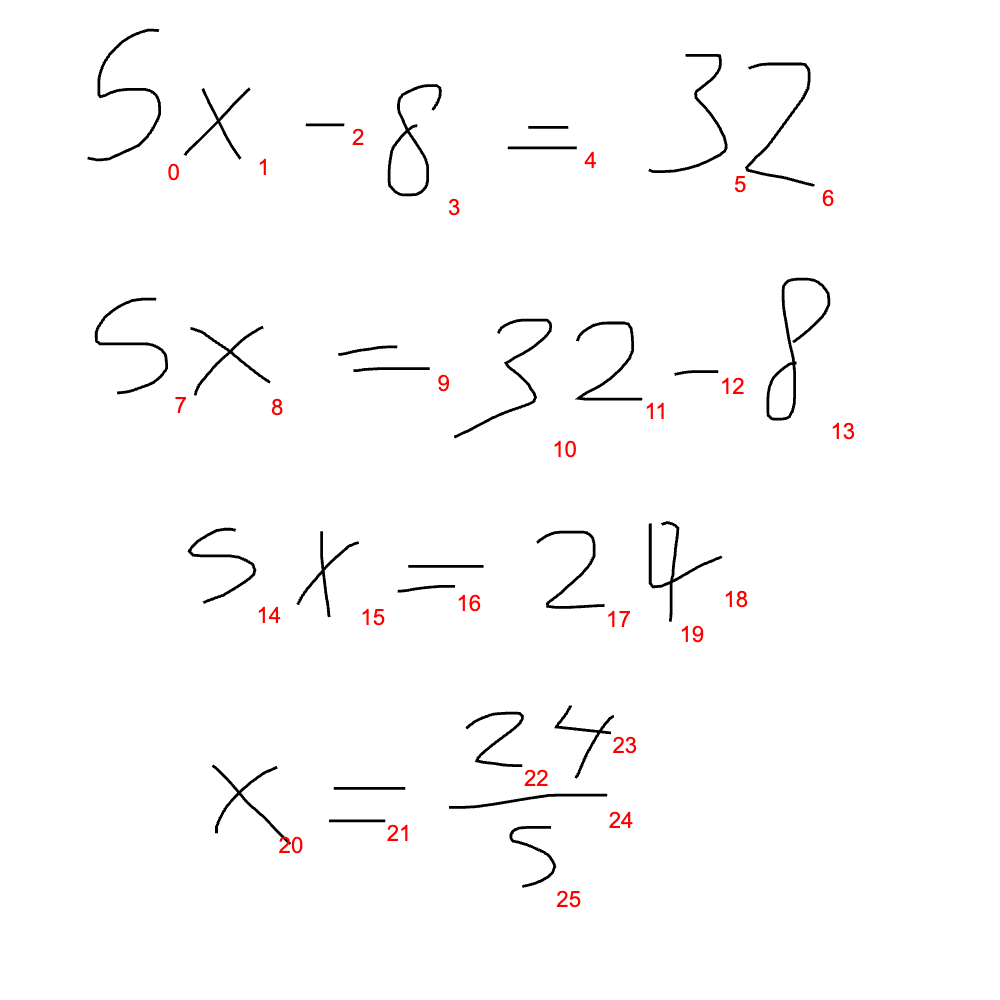 5x - 8 = 32
0 1 2 3 4 5 6
5x = 32 - 8
7 8 9 10 11 12 13
5x = 24
14 15 16 17 18 19
x = 24/5
20 21 22 23 24 25